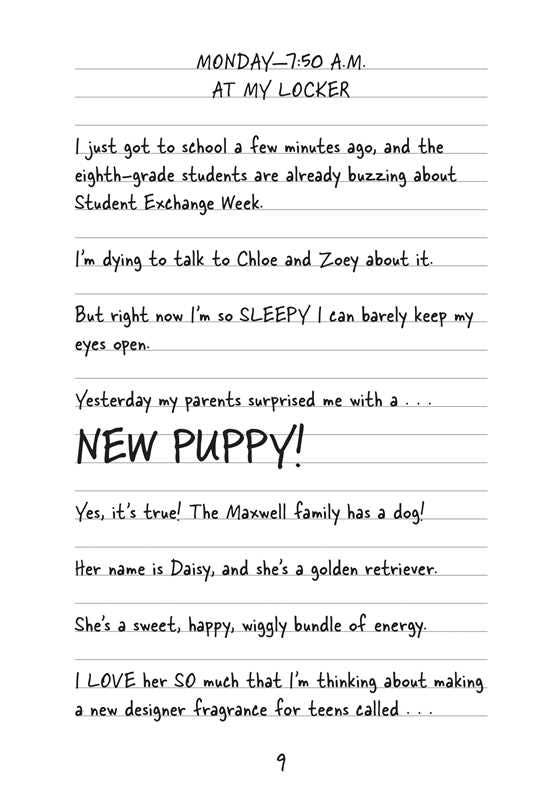 MONDAY—7:50 A.M.
AT MY LOCKER
I just got to school a few minutes ago, and the
eighth-grade students are already buzzing about
Student Exchange Week.
I'm dying to talk to Chloe and Zoey about it.
But right now I'm so SLEEPY I can barely keep my
eyes open.
Yesterday my parents surprised me with a . . .
NEW PUPPY!
Yes, it's true! The Maxwell family has a dog!
Her name is Daisy, and she's a golden retriever.
She's a sweet, happy, wiggly bundle of energy.
I LOVE her SO much that I'm thinking about making
a new designer fragrance for teens called . . .
9